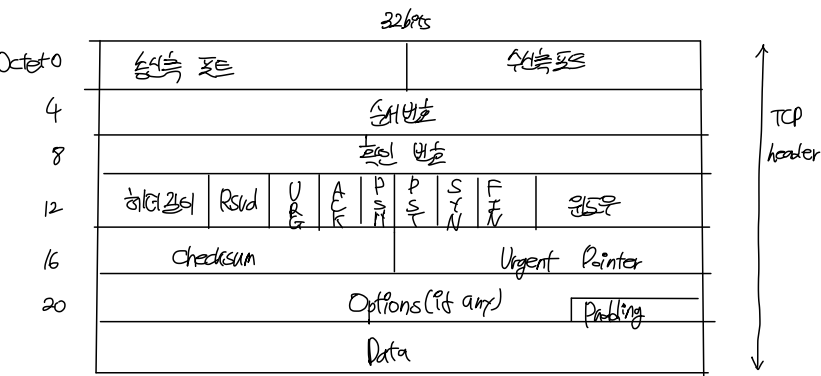 32bits
Octet 0 송신측 포트 수신측포트
4 순서번호
8 확인 번호
12 헤더길이 Rsvd URG ACK PSH PST SYN FIN 윈도우
16 Checksum Urgent Pointer
20 Options(if any) Padding
Data
TCP
header